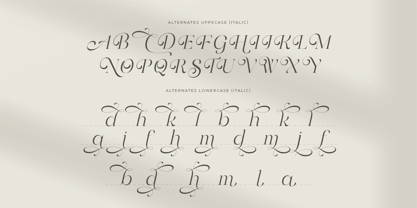 ALTERNATES UPPECASE (ITALIC)
A B C D E F G H I J K L M
N O P Q R S T U V W X Y
ALTERNATED LOWERCASE (ITALIC)
d h k l b h k l
a i f h m d m j f
b d h m l a